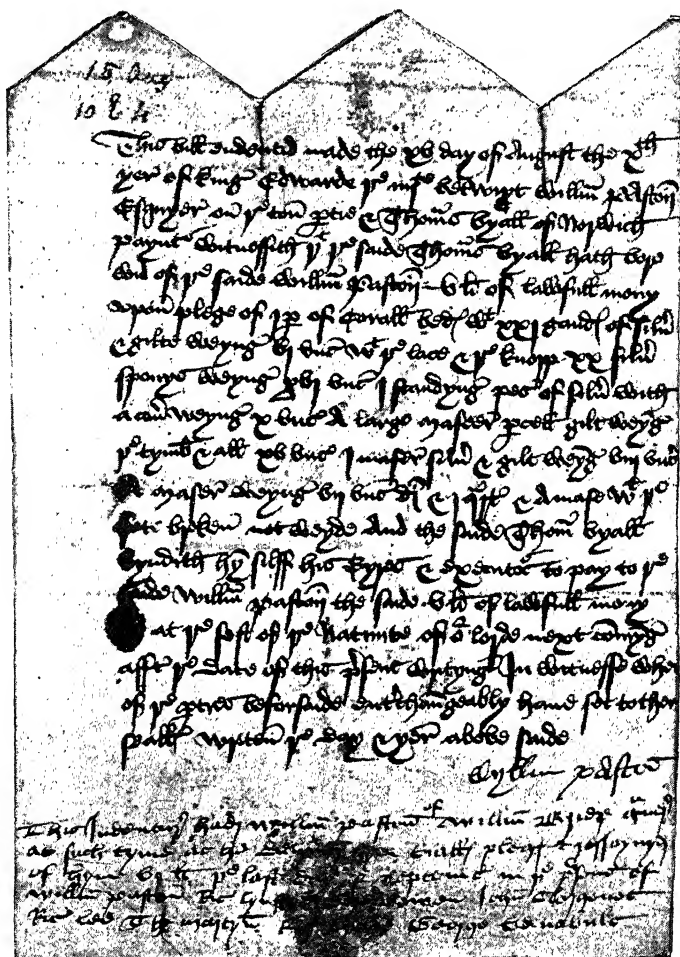 15 Aug
10 E 4
This bill endentid made the xv day of August the xth
yer of kyng Edwarde þe iiijte betwixt Willm Paston
Esquyer on þe ton ptie & Thoms Vyall of Norwich
paynter Witnessith þt þe saide Thoms Vyall hath borowed
of þe saide Willm Paston v li of lawfull mony
upon plege of j pr of Corall bedes wt xxj gaudes of silur
& gilte weyng vj unc wt þe lace & þe knopp xx silur
sponys weyng xvj unc j standyng pece of silur with
a cour weyng x unc A large maser pcell gilt weyng
þe tymbr & all xv unc j maser silur & gilt weyng viij unc
A maser weyng vij unc di & j qrt & A mase wt þe
fote broken not weyde And the saide Thoms Vyall
byndith hym silff his Eyres & executors to pay to þe
saide Willm Paston the saide v li of lawfull mony
at þe fest of þe Natiuite of or lorde next comyng
affter þe date of this psent writyng In witnesse wher
of þe pties beforsaide enterchaungeably haue set to ther
sealles wreton þe day & yer above saide
Wyllm Paston
This Indentur hadd Wyllm Paston of Willm
at such tyme as he Vialles pleges
of hym v li þe last day of in þe psens of
Wyllm Paston
George Venables